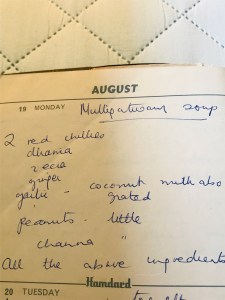 AUGUST
19 MONDAY Mulligatwany soup
2 red chillies
dhania
zeera
ginger
garlic - coconut milk also
grated
Peanuts - little
channa "
All the above ingredients
Hamdard
20 TUESDAY